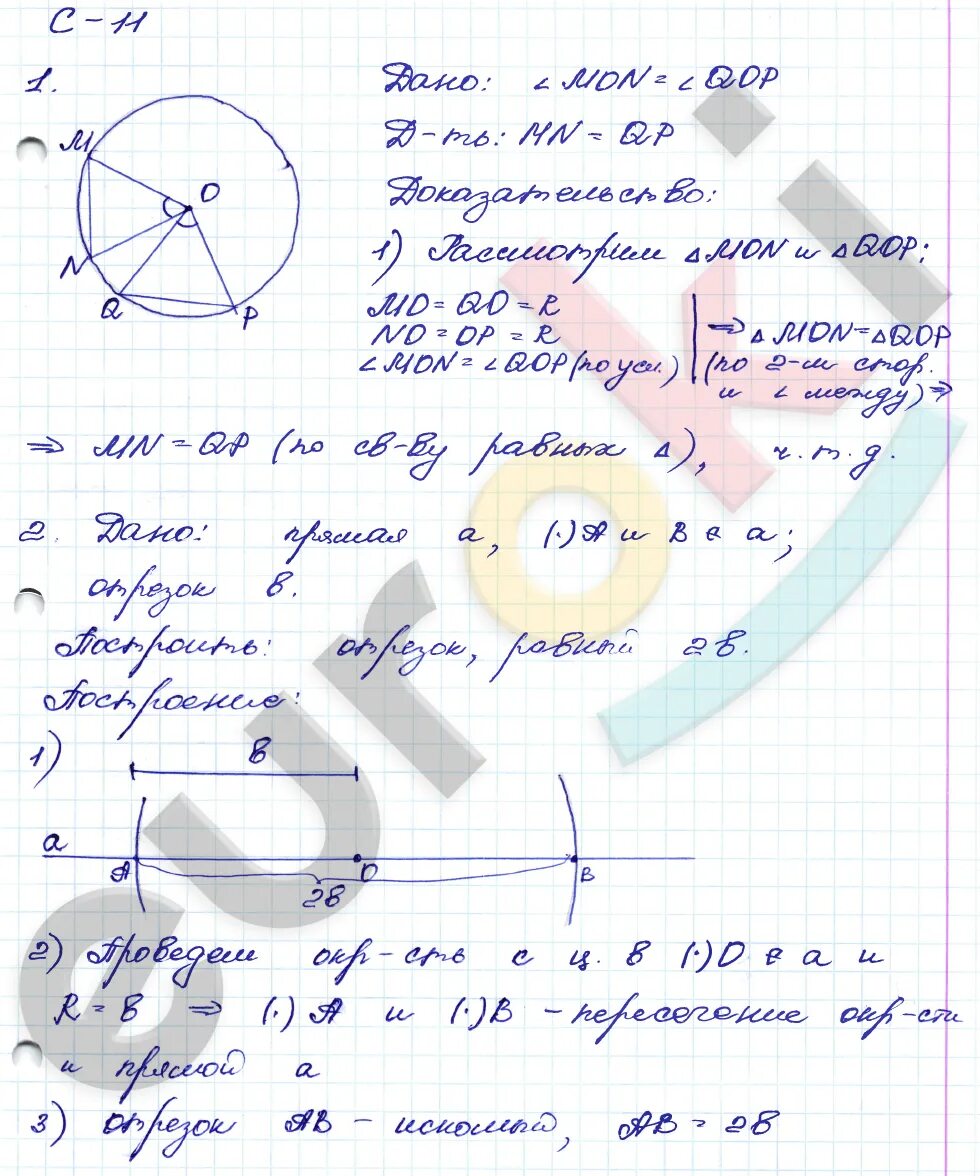 С-11
1.
Дано: ∠MON = ∠QOP
Д-ть: MN = QP
Доказательство:
M
O
N
Q
P
1) Рассмотрим △MON и △QOP:
MO = QO = R
NO = OP = R
∠MON = ∠QOP (по усл.)
⇒ △MON = △QOP
(по 2-м стор.
и ∠ между) ⇒
⇒ MN = QP (по св-ву равных △), ч.т.д.
2. Дано: прямая a, (·)A и B ∈ a;
отрезок в.
Построить: отрезок, равный 2в.
Построение:
1)
в
a
A
O
B
2в
2) Проведем окр-сть с ц. в (·)O ∈ a и
R = в ⇒ (·) A и (·)B - пересечение окр-сти
и прямой a
3) отрезок AB - искомый, AB = 2в
euroki